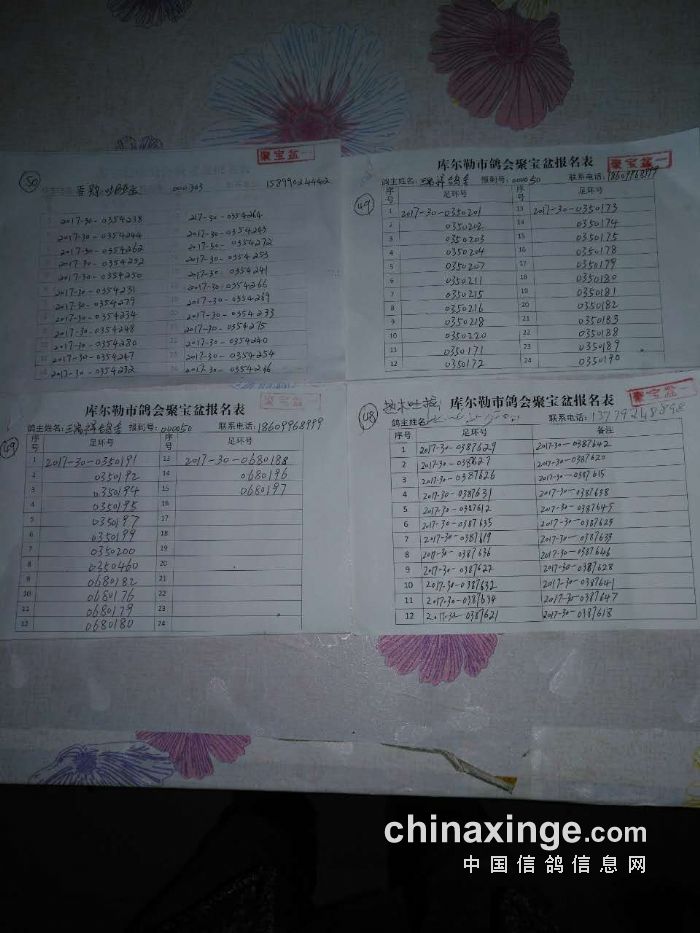 聚宝盆一
50
000303
15899024442
2017-30-0354238 217-30-0354264
2017-30-0354244 2017-30-0354243
2017-30-0354262 2017-30-0354272
2017-30-0354252 2017-30-0354253
2017-30-0354250 2017-30-0354241
2017-30-0354231 2017-30-0354266
2017-30-0354279 2017-30-0354269
2017-30-0354234 2017-30-0354233
2017-30-0354248 2017-30-0354275
2017-30-0354280 2017-30-0354240
2017-30-0354247 2017-30-0354254
2017-30-0354232 2017-30-0354246
聚宝盆一
库尔勒市鸽会聚宝盆报名表
49
鸽主姓名: 报到号:00050 联系电话:18609968999
序号 足环号 序号 足环号
1 2017-30-0350201 13 2017-30-0350173
2 0350202 14 0350174
3 0350203 15 0350175
4 0350204 16 0350178
5 0350207 17 0350179
6 0350211 18 0350180
7 0350215 19 0350181
8 0350216 20 0350182
9 0350218 21 0350183
10 0350220 22 0350188
11 0350171 23 0350189
12 0350172 24 0350190
聚宝盆一
库尔勒市鸽会聚宝盆报名表
49
鸽主姓名: 报到号:000050 联系电话:18609968999
序号 足环号 序号 足环号
1 2017-30-0350191 13 2017-30-0680188
2 0350192 14 0680196
3 0350194 15 0680197
4 0350195 16
5 0350197 17
6 0350199 18
7 0350200 19
8 0350460 20
9 0680182 21
10 0680176 22
11 0680179 23
12 0680180 24
聚宝盆一
48
库尔勒市鸽会聚宝盆报名表
鸽主姓名: 联系电话:13779248898
序号 足环号 备注
1 2017-30-0387629 2017-30-0387642
2 2017-30-0387627 2017-30-0387620
3 2017-30-0387626 2017-30-0387615
4 2017-30-0387631 2017-30-0387638
5 2017-30-0387612 2017-30-0387645
6 2017-30-0387635 2017-30-0387625
7 2017-30-0387619 2017-30-0387639
8 2017-30-0387636 2017-30-0387646
9 2017-30-0387622 2017-30-0387628
10 2017-30-0387632 2017-30-0387641
11 2017-30-0387634 2017-30-0387647
12 2017-30-0387621 2017-30-0387618
chinaxinge.com
中国信鸽信息网